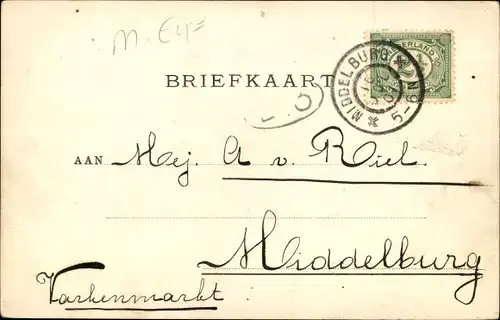 BRIEFKAART
NEDERLAND
MIDDELBURG
5-6 N
AAN Mej. A v. Riel.
Middelburg
Varkenmarkt